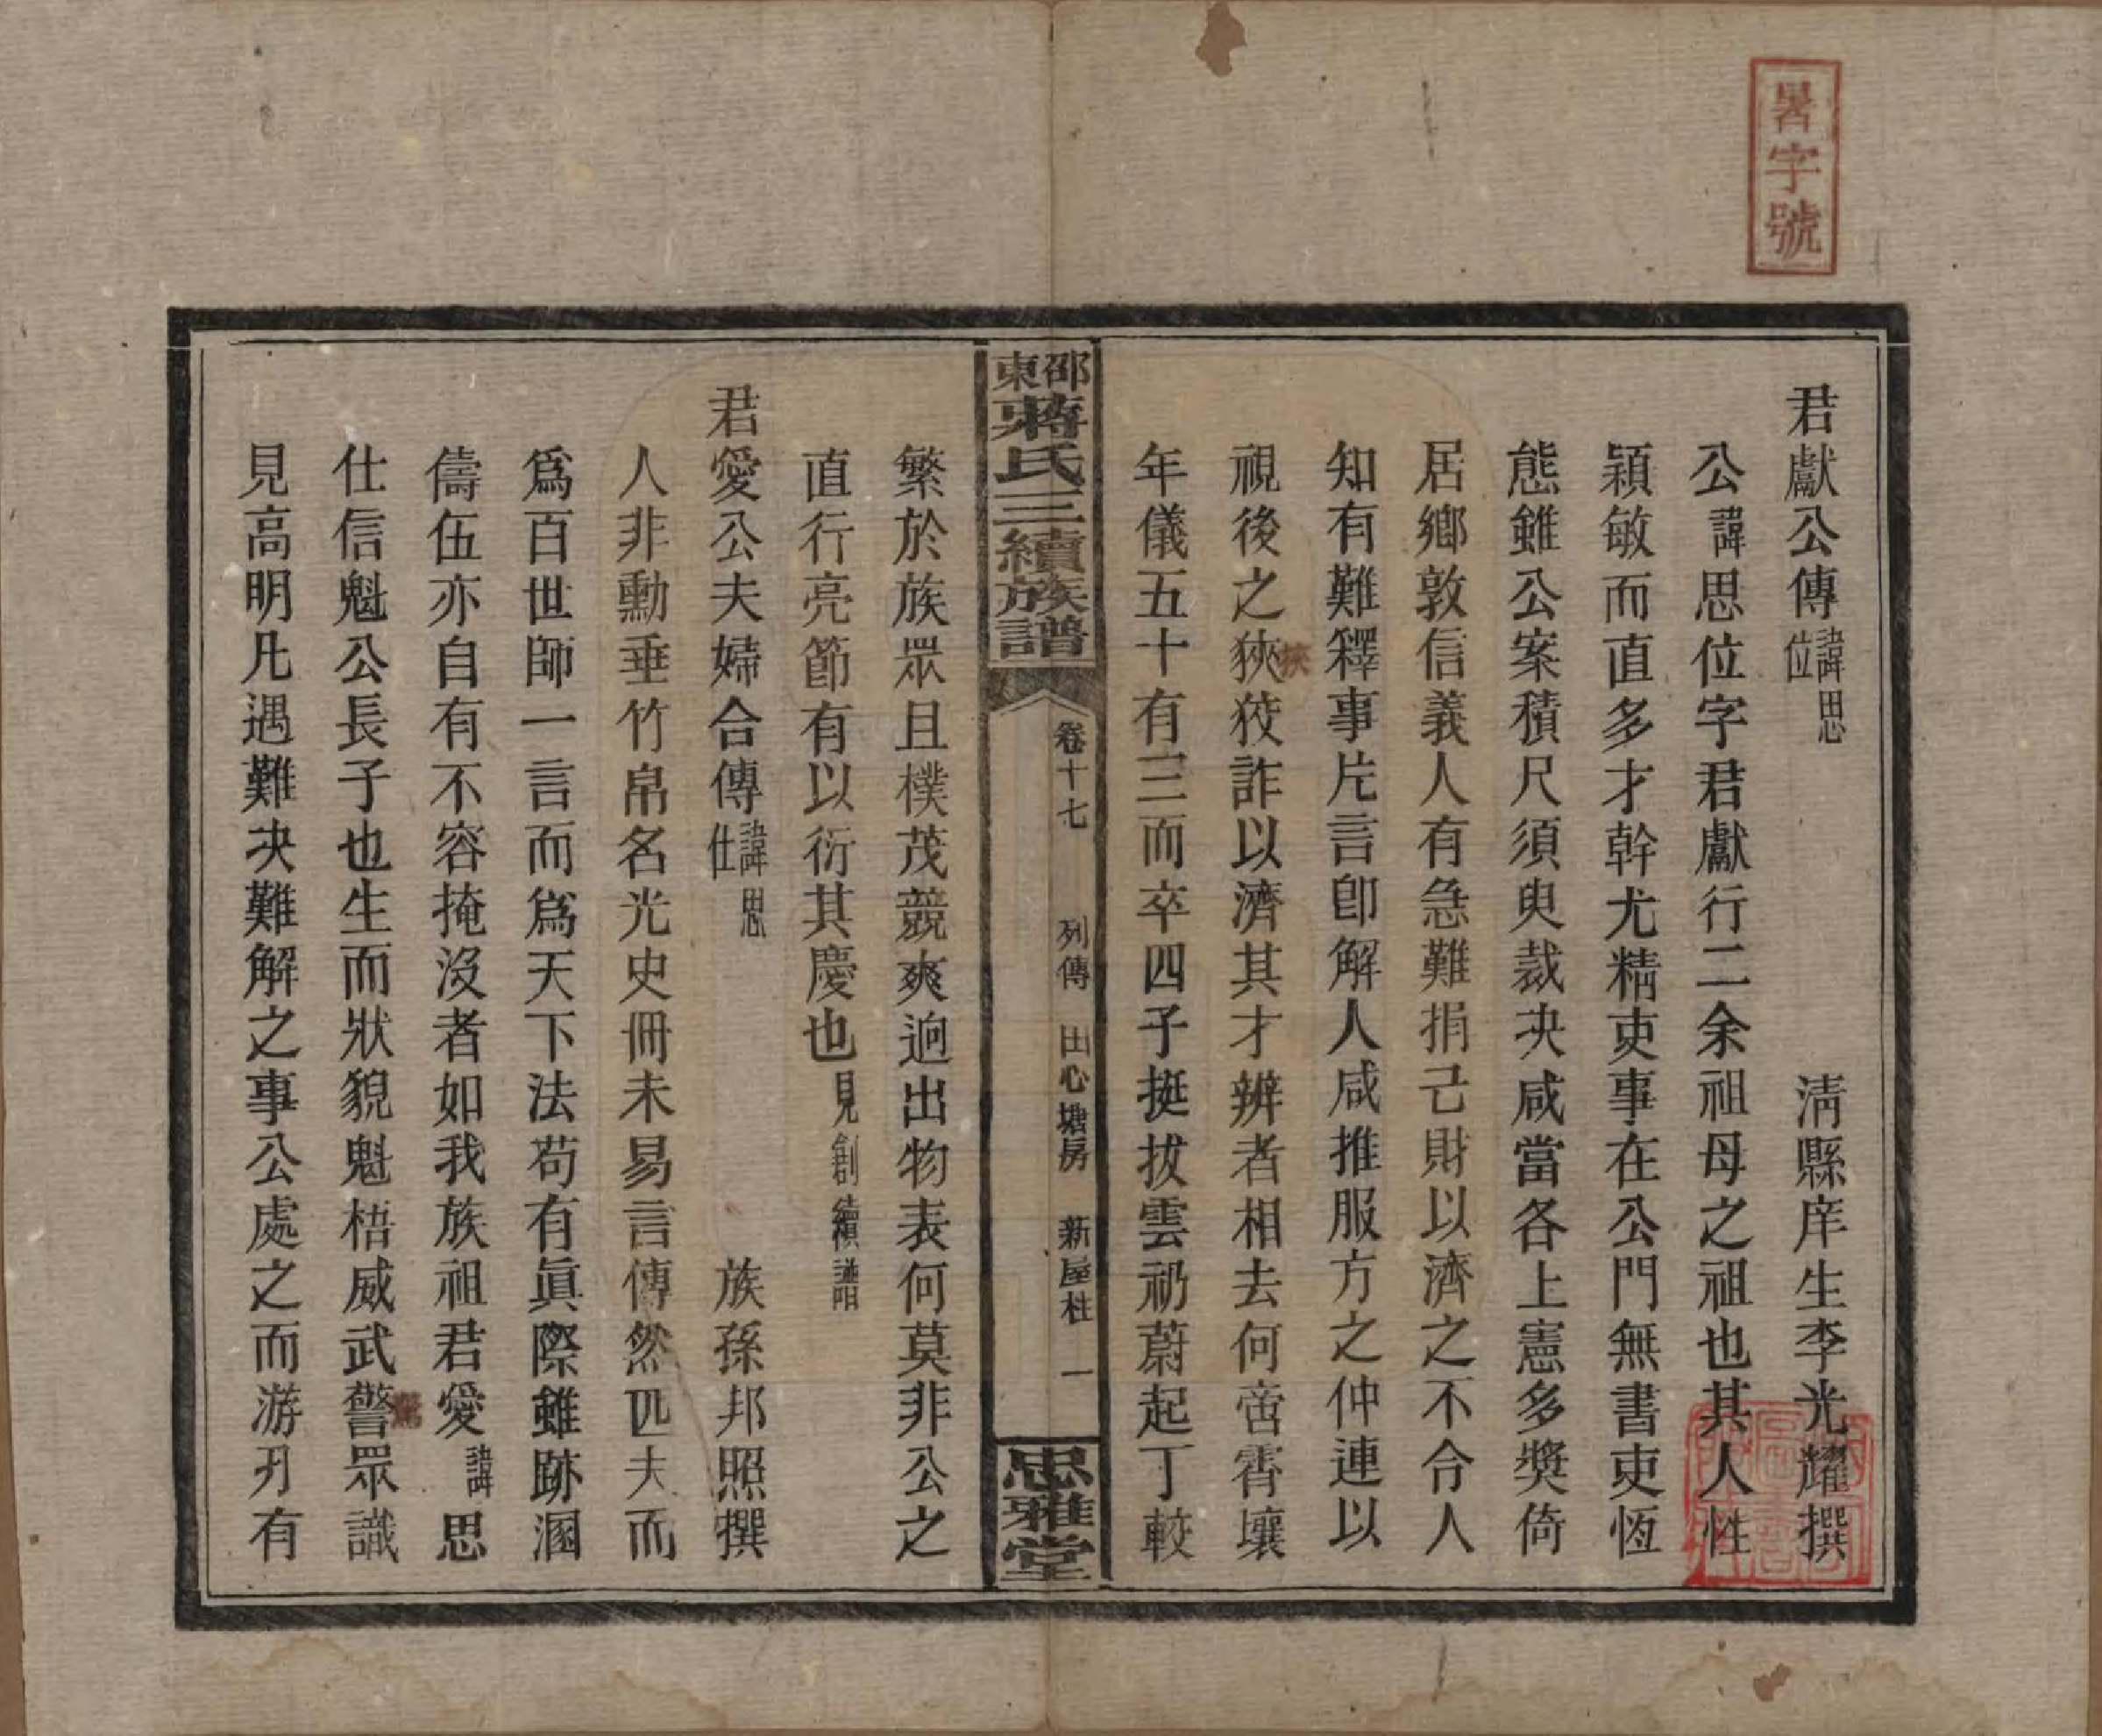 暑字號
君獻公傳諱思位
清縣庠生李光耀撰
公諱思位字君獻行二余祖母之祖也其人性
穎敏而直多才幹尤精吏事在公門無書吏恆
態雖公案積尺須臾裁决咸當各上憲多獎倚
居鄉敦信義人有急難捐己財以濟之不令人
知有難釋事片言卽解人咸推服方之仲連以
視後之狹狡詐以濟其才辨者相去何啻霄壤
挾
年儀五十有三而卒四子挺拔雲礽蔚起丁較
邵東蔣氏三續族譜
卷十七 列傳 田心塘房 新屋柱 一
忠雅堂
繁於族眾且樸茂競爽迥出物表何莫非公之
直行亮節有以衍其慶也見創續譜
君愛公夫婦合傳諱思仕
族孫邦照撰
人非勳垂竹帛名光史冊未易言傳然匹夫而
爲百世師一言而爲天下法苟有眞際雖跡溷
儔伍亦自有不容掩沒者如我族祖君愛諱思
仕信魁公長子也生而狀貌魁梧威武警眾識
見高明凡遇難决難解之事公處之而游刃有